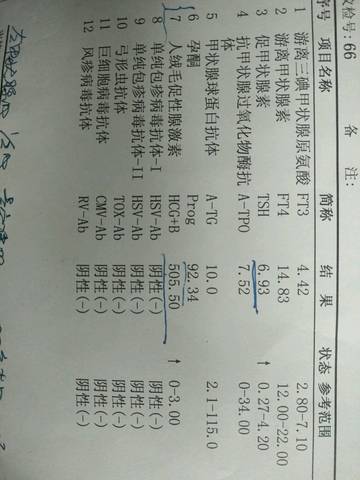 文检号: 66 备 注:
序号 项目名称 简称 结 果 状态 参考范围
1 游离三碘甲状腺原氨酸 FT3 4.42 2.80-7.10
2 游离甲状腺素 FT4 14.83 12.00-22.00
3 促甲状腺素 TSH 6.93 ↑ 0.27-4.20
4 抗甲状腺过氧化物酶抗体 A-TPO 7.52 0-34.00
5 甲状腺球蛋白抗体 A-TG 10.0 2.1-115.0
6 孕酮 Prog 92.34
7 人绒毛促性腺激素 HCG+B 505.50 ↑ 0-3.00
8 单纯包疹病毒抗体-I HSV-Ab 阴性(-) 阴性(-)
9 单纯包疹病毒抗体-II HSV-Ab 阴性(-) 阴性(-)
10 弓形虫抗体 TOX-Ab 阴性(-) 阴性(-)
11 巨细胞病毒抗体 CMV-Ab 阴性(-) 阴性(-)
12 风疹病毒抗体 RV-Ab 阴性(-) 阴性(-)